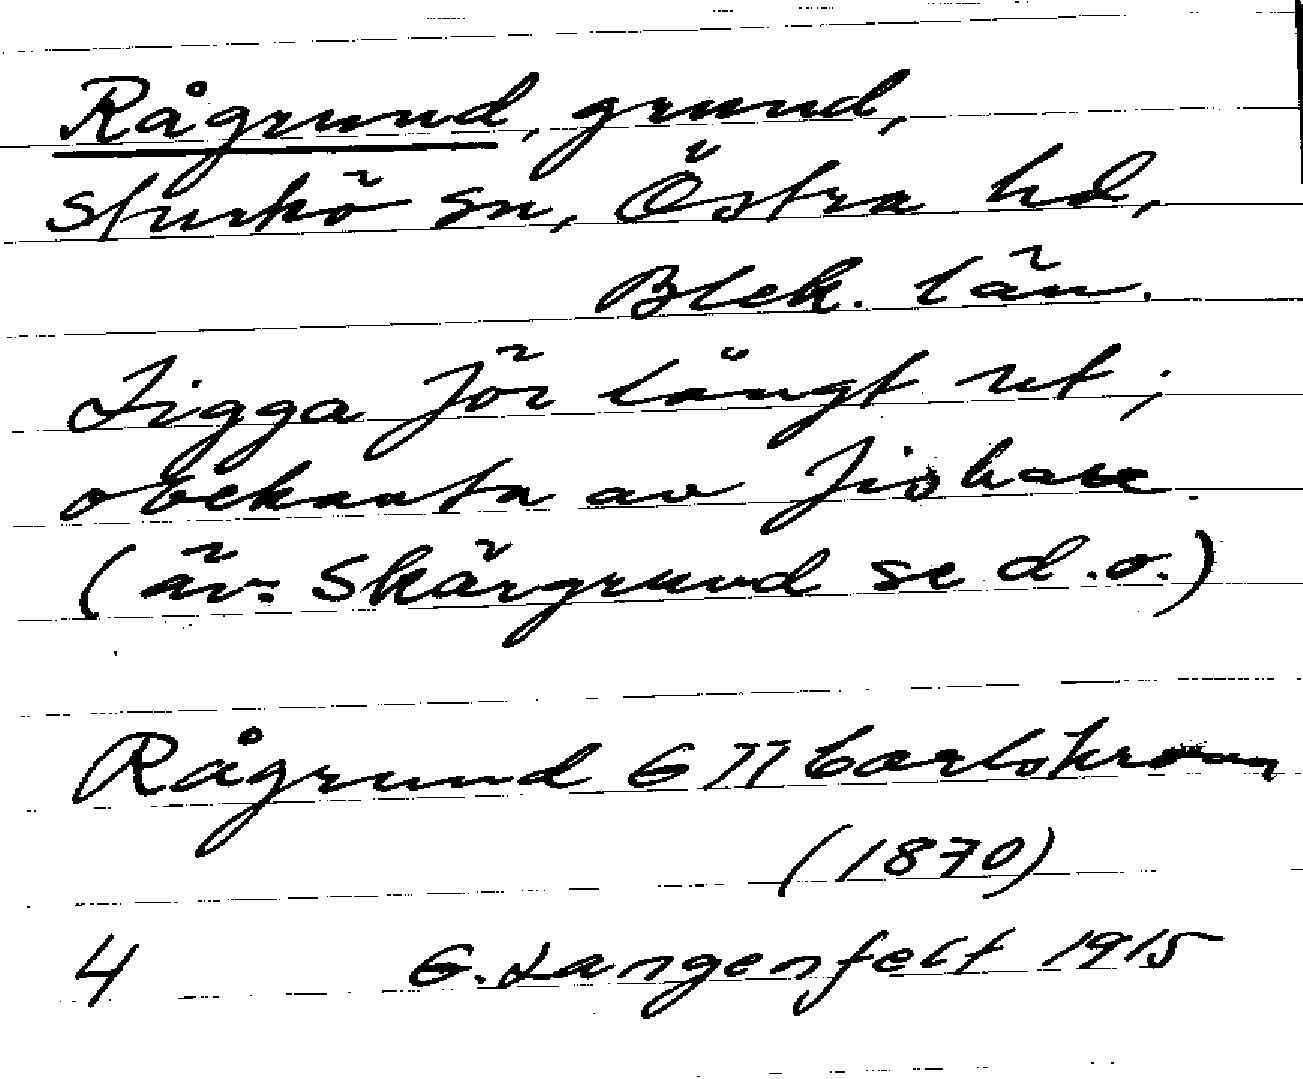 Rågrund, grund,
Sturkö sn, Östra hd,
Blek. län.
Ligga för långt ut;
obekanta av fiskare.
(äv. Skärgrund se d.o.)
Rågrund G 77 Carlskrona
(1870)
4 G. Langenfelt 1915